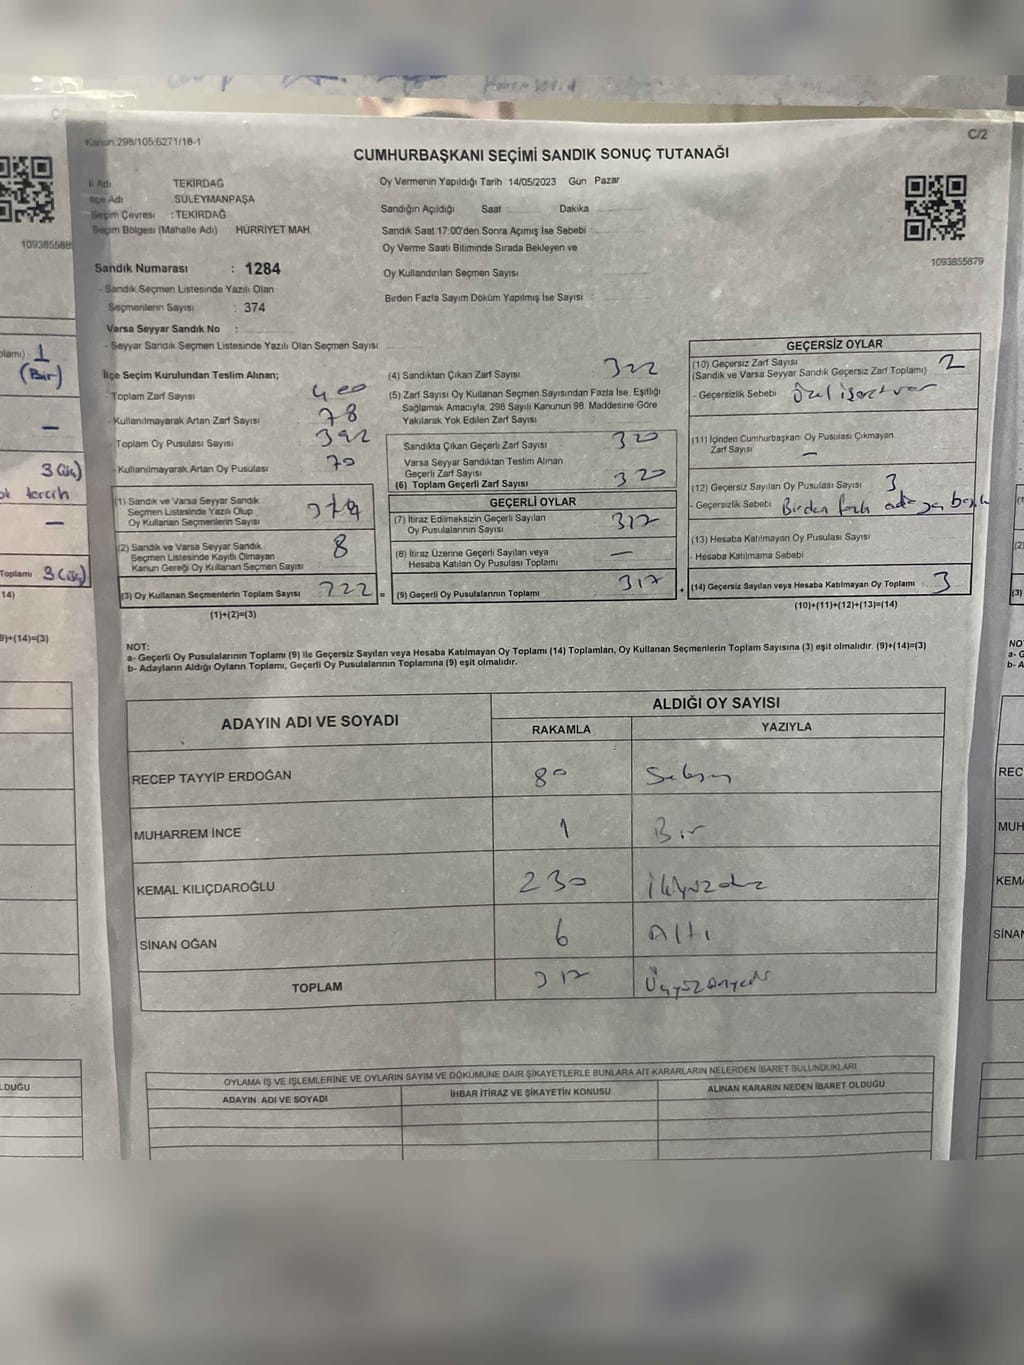 C/2
Kanun 298/105,6271/18-1
CUMHURBAŞKANI SEÇİMİ SANDIK SONUÇ TUTANAĞI
İl Adı TEKİRDAĞ
İlçe Adı SÜLEYMANPAŞA
Seçim Çevresi : TEKİRDAĞ
Seçim Bölgesi (Mahalle Adı) HÜRRİYET MAH.
Sandık Numarası : 1284
- Sandık Seçmen Listesinde Yazılı Olan
Seçmenlerin Sayısı : 374
Varsa Seyyar Sandık No :
- Seyyar Sandık Seçmen Listesinde Yazılı Olan Seçmen Sayısı
Oy Vermenin Yapıldığı Tarih : 14/05/2023 Gün Pazar
Sandığın Açıldığı Saat Dakika
Sandık Saat 17:00'den Sonra Açımış İse Sebebi
Oy Verme Saati Bitiminde Sırada Bekleyen ve
Oy Kullandırılan Seçmen Sayısı
Birden Fazla Sayım Döküm Yapılmış İse Sayısı :
1093855879
109385588
İlçe Seçim Kurulundan Teslim Alınan;
- Toplam Zarf Sayısı 400
- Kullanılmayarak Artan Zarf Sayısı 78
- Toplam Oy Pusulası Sayısı 392
- Kullanılmayarak Artan Oy Pusulası 70
(1) Sandık ve Varsa Seyyar Sandık
Seçmen Listesinde Yazılı Olup
Oy Kullanan Seçmenlerin Sayısı
(2) Sandık ve Varsa Seyyar Sandık
Seçmen Listesinde Kayıtlı Olmayan
Kanun Gereği Oy Kullanan Seçmen Sayısı 8
(3) Oy Kullanan Seçmenlerin Toplam Sayısı 322 =
(1)+(2)=(3)
(4) Sandıktan Çıkan Zarf Sayısı 322
(5) Zarf Sayısı Oy Kullanan Seçmen Sayısından Fazla İse, Eşitliği
Sağlamak Amacıyla, 298 Sayılı Kanunun 98. Maddesine Göre
Yakılarak Yok Edilen Zarf Sayısı
Sandıkta Çıkan Geçerli Zarf Sayısı 320
Varsa Seyyar Sandıktan Teslim Alınan
Geçerli Zarf Sayısı
(6) Toplam Geçerli Zarf Sayısı 320
GEÇERLİ OYLAR
(7) İtiraz Edilmeksizin Geçerli Sayılan
Oy Pusulalarının Sayısı 317
(8) İtiraz Üzerine Geçerli Sayılan veya
Hesaba Katılan Oy Pusulası Toplamı —
(9) Geçerli Oy Pusulalarının Toplamı 317 +
GEÇERSİZ OYLAR
(10) Geçersiz Zarf Sayısı 2
(Sandık ve Varsa Seyyar Sandık Geçersiz Zarf Toplamı)
- Geçersizlik Sebebi Özel işaret var
(11) İçinden Cumhurbaşkanı Oy Pusulası Çıkmayan
Zarf Sayısı —
(12) Geçersiz Sayılan Oy Pusulası Sayısı 3
- Geçersizlik Sebebi Birden fazla adaya
(13) Hesaba Katılmayan Oy Pusulası Sayısı
- Hesaba Katılmama Sebebi
(14) Geçersiz Sayılan veya Hesaba Katılmayan Oy Toplamı 3
(10)+(11)+(12)+(13)=(14)
NOT:
a- Geçerli Oy Pusulalarının Toplamı (9) ile Geçersiz Sayılan veya Hesaba Katılmayan Oy Toplamı (14) Toplamları, Oy Kullanan Seçmenlerin Toplam Sayısına (3) eşit olmalıdır. (9)+(14)=(3)
b- Adayların Aldığı Oyların Toplamı, Geçerli Oy Pusulalarının Toplamına (9) eşit olmalıdır.
ADAYIN ADI VE SOYADI ALDIĞI OY SAYISI
RAKAMLA YAZIYLA
RECEP TAYYİP ERDOĞAN 80 Seksen
MUHARREM İNCE 1 Bir
KEMAL KILIÇDAROĞLU 230 ikiyüzotuz
SİNAN OĞAN 6 Altı
TOPLAM 317 Üçyüzonyedi
OYLAMA İŞ VE İŞLEMLERİNE VE OYLARIN SAYIM VE DÖKÜMÜNE DAİR ŞİKAYETLERLE BUNLARA AİT KARARLARIN NELERDEN İBARET BULUNDUKLARI
ADAYIN ADI VE SOYADI İHBAR İTİRAZ VE ŞİKAYETİN KONUSU ALINAN KARARIN NEDEN İBARET OLDUĞU
1
(Bir)
3 (üç)
tercih
Toplamı 3 (üç)
14)
9)+(14)=(3)
LDUĞU
NO
a- G
b- A
REC
MUH
KEMA
SİNAN